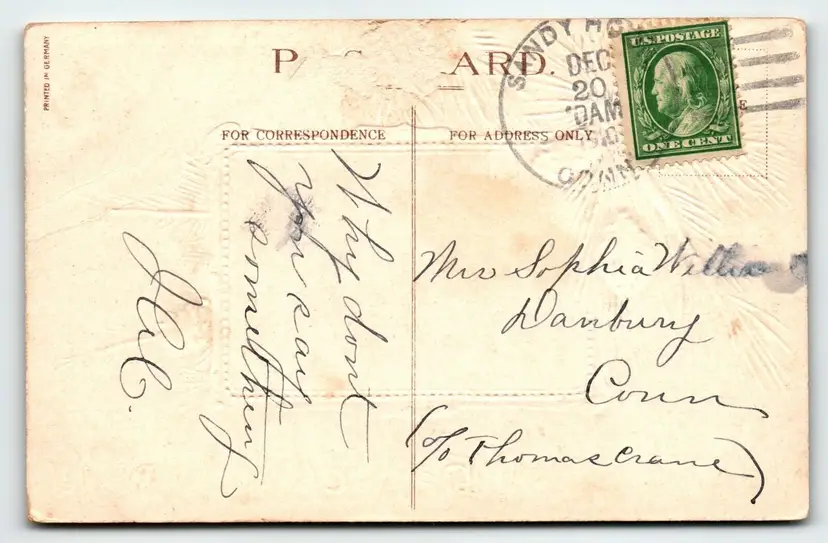 PRINTED IN GERMANY
P ARD.
SANDY HOOK
DEC
20
AM
1910
CONN
U.S. POSTAGE
ONE CENT
FOR CORRESPONDENCE
FOR ADDRESS ONLY
Why dont
you say
something
Mrs Sophia
Danbury
Conn
(c/o Thomas Crane)